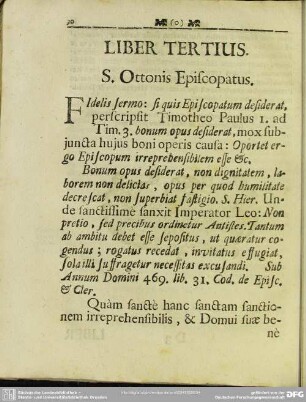 30 (o)
LIBER TERTIUS.
S. Ottonis Episcopatus.
FIdelis sermo: si quis Episcopatum desiderat,
perscripsit Timotheo Paulus 1. ad
Tim. 3. bonum opus desiderat, mox sub-
juncta hujus boni operis causa: Oportet er-
go Episcopum irreprehensibilem esse &c.
Bonum opus desiderat, non dignitatem, la-
borem non delicias, opus per quod humilitate
decrescat, non superbiat fastigio. S. Hier. Un-
de sanctissime sanxit Imperator Leo: Non
pretio, sed precibus ordinetur Antistes. Tantum
ab ambitu debet esse sepositus, ut quæratur co-
gendus; rogatus recedat, invitatus effugiat,
sola illi suffragetur necessitas excusandi. Sub
Annum Domini 469. lib. 31. Cod. de Episc.
& Cler.
Quàm sanctè hanc sanctam sanctio-
nem irreprehensibilis, & Domui suæ be-
nè